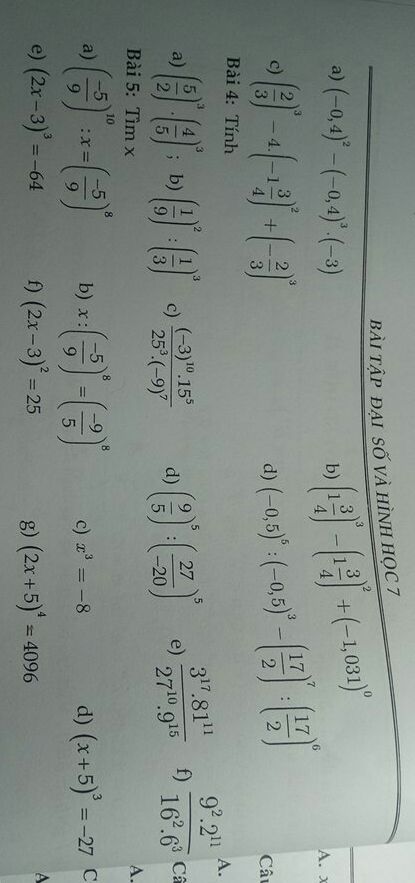 BÀI TẬP ĐẠI SỐ VÀ HÌNH HỌC 7
a) (−0,4)² − (−0,4)³.(−3)
b) (1 3/4)³ − (1 3/4)² + (−1,031)⁰
A. x
c) (2/3)³ − 4.(−1 3/4)² + (−2/3)³
d) (−0,5)⁵ : (−0,5)³ − (17/2)⁷ : (17/2)⁶
Câu
Bài 4: Tính
A.
a) (5/2)³.(4/5)³ ; b) (1/9)² : (1/3)³ c) (−3)¹⁰.15⁵ / 25³.(−9)⁷ d) (9/5)⁵ : (27/−20)⁵ e) 3¹⁷.81¹¹ / 27¹⁰.9¹⁵ f) 9².2¹¹ / 16².6³
Câ
Bài 5: Tìm x
A.
a) (−5/9)¹⁰ : x = (−5/9)⁸ b) x : (−5/9)⁸ = (−9/5)⁸ c) x³ = −8 d) (x + 5)³ = −27
C
e) (2x − 3)³ = −64 f) (2x − 3)² = 25 g) (2x + 5)⁴ = 4096
A